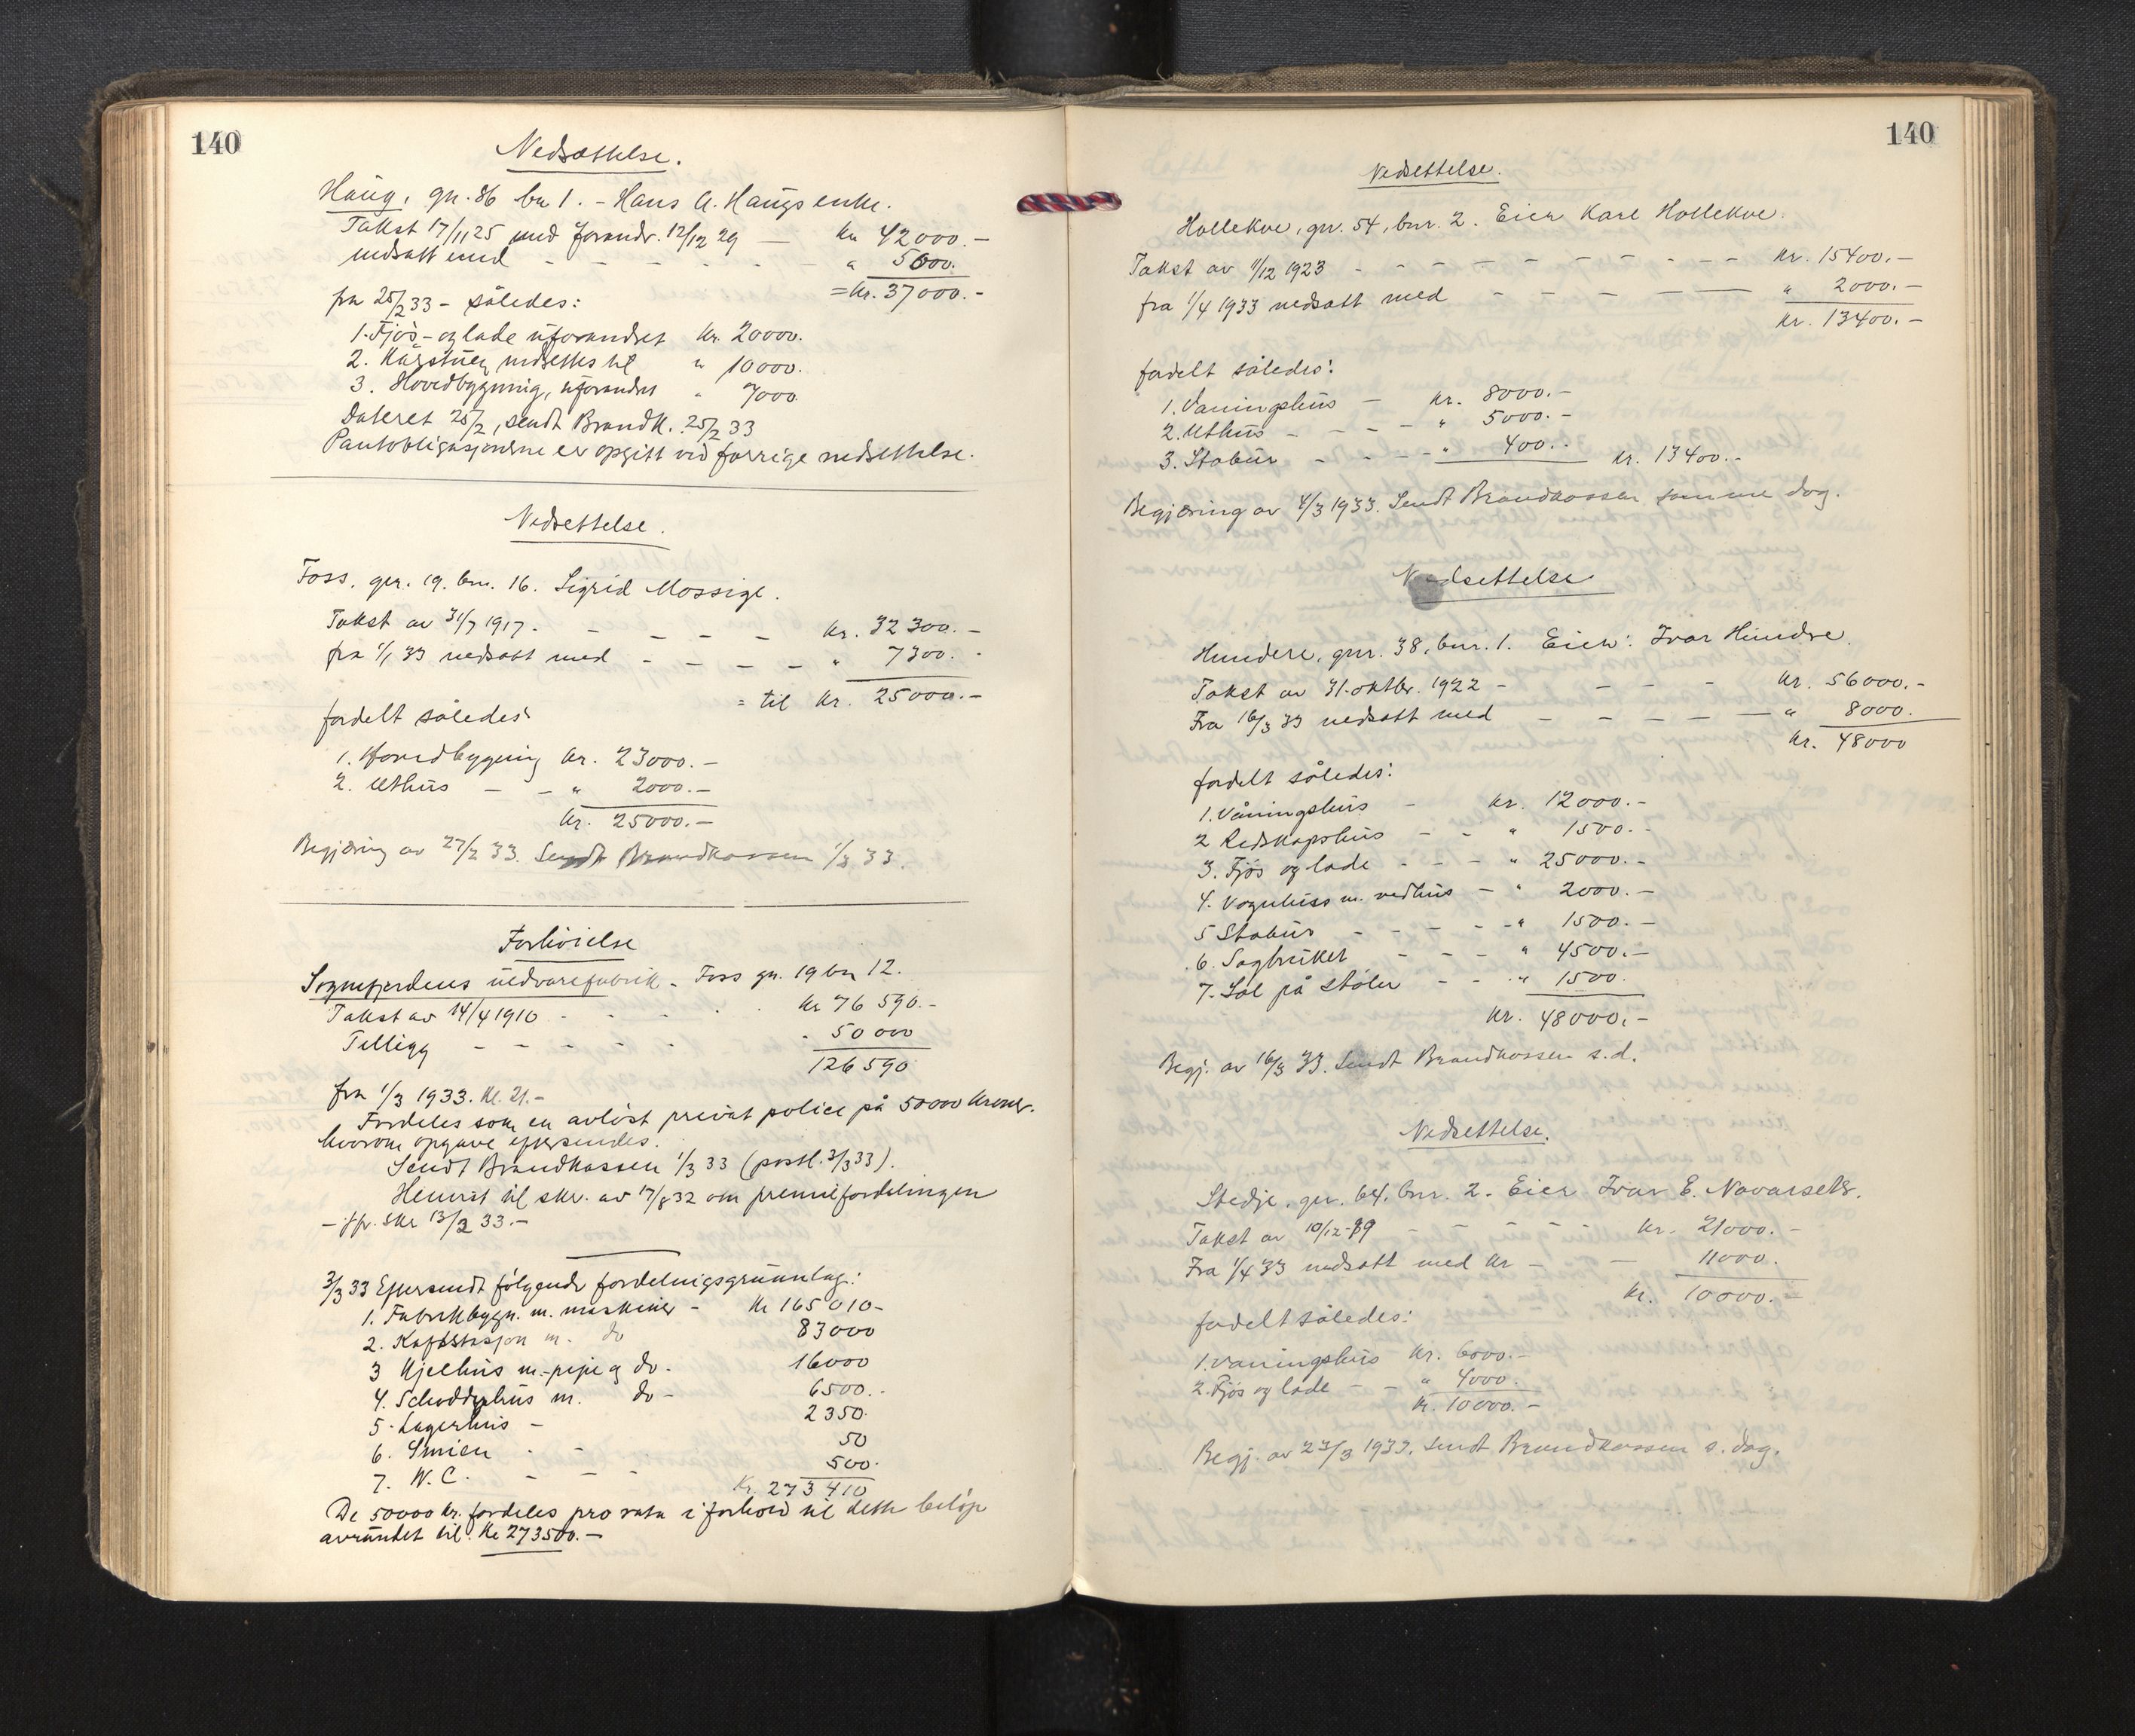 140
Nedsættelse.
Haug, gn. 86 bn 1. - Hans A. Haugs enke.
Takst 17/11 25 med forandr. 12/12 29 — kr 42000.-
nedsatt med - - - - - " 5000.
= kr. 37000.-
fra 25/2 33 - således:
1. Fjøs- og lade uforandret kr. 20000.
2. nedsettes til " 10000.
3. Hovedbygning, uforandret " 7000.
Dateret 25/2, sendt Brandk. 25/2 33
Pantobligasjonene er opgitt ved forrige nedsettelse.
Nedsettelse.
Foss. gnr. 19. bnr. 16. Sigrid Mossige.
Takst av 31/7 1917. - - - - kr. 32300.-
fra 1/1 33 nedsatt med - - - - " 7300.-
= til kr. 25000.-
fordelt således:
1. Hovedbygning kr. 23000.-
2. Uthus — - " 2000.-
kr. 25000.-
Begjæring av 27/2 33. Sendt Brandkassen 1/3 33.
Forhøielse
Sognefjordens uldvarefabrik - Foss gn. 19 bn 12.
Takst av 14/4 1910 - - - . . kr 76590.-
Tillegg - - - - - . 50000
126590
fra 1/3 1933. Kl. 21.-
Fordeles som en avløst privat police på 50000 kroner.
hvorom opgave eftersendes.
Sendt Brandkassen 1/3 33 (postl. 3/3 33).
Henvist til skr. av 17/8 32 om premiefordelingen
- jfr. skr 13/2 33.-
3/3 33 Eftersendt følgende fordelingsgrunnlag:
1. Fabrikbygn. m. maskiner - kr 165010-
2. Kraftstasjon m. do 83000
3 Kjelhus m. pipe og do. 16000
4. Schoddyhus m. do - 6500.-
5. Lagerhus - 2350.
6. Smien . - 50
7. W.C. - - - 500.
Kr. 273410
De 50000 kr. fordeles pro rata i forhold til dette beløp
avrundet til kr 273500.-
140
Nedsettelse.
Hollekve, gnr. 54, bnr. 2. Eier Karl Hollekve.
Takst av 11/12 1923 - - - - - - - - - - kr. 15400.-
fra 1/4 1933 nedsatt med - - - - - — " 2000.-
kr. 13400.-
fordelt således:
1. Våningshus — kr. 8000.-
2. Uthus - - - - " 5000.-
3. Stabur - - - - " 400.- kr. 13400.-
Begjæring av 4/3 1933. Sendt Brandkassen samme dag.
Nedsettelse
Hundere, gnr. 38, bnr. 1. Eier: Ivar Hundre.
Takst av 31. oktbr. 1922 - - - - kr. 56000.-
Fra 16/3 33 nedsatt med - - - - — " 8000.
kr. 48000
fordelt således:
1. Våningshus - kr. 12000.-
2 Redskapshus - - " 1500.-
3. Fjøs og lade - - - " 25000.-
4. Vognhus m. vedhus - " 2000.-
5 Stabur - - - - - " 1500.-
6. Sagbruket - - - " 4500.-
7. Sel på stølen - - " 1500.
kr. 48000.-
Begj. av 16/3 33. Sendt Brandkassen s.d.
Nedsettelse.
Stedje, gnr. 64, bnr. 2. Eier Ivar E. Navarsete.
Takst av 10/12-89 - - - - - kr. 21000.-
Fra 1/4 33 nedsatt med kr - — 11000.
kr. 10000.-
fordelt således:
1. Våningshus kr. 6000.-
2. Fjøs og lade - - " 4000.
kr. 10000.-
Begj. av 23/3 1933. Sendt Brandkassen s. dag.